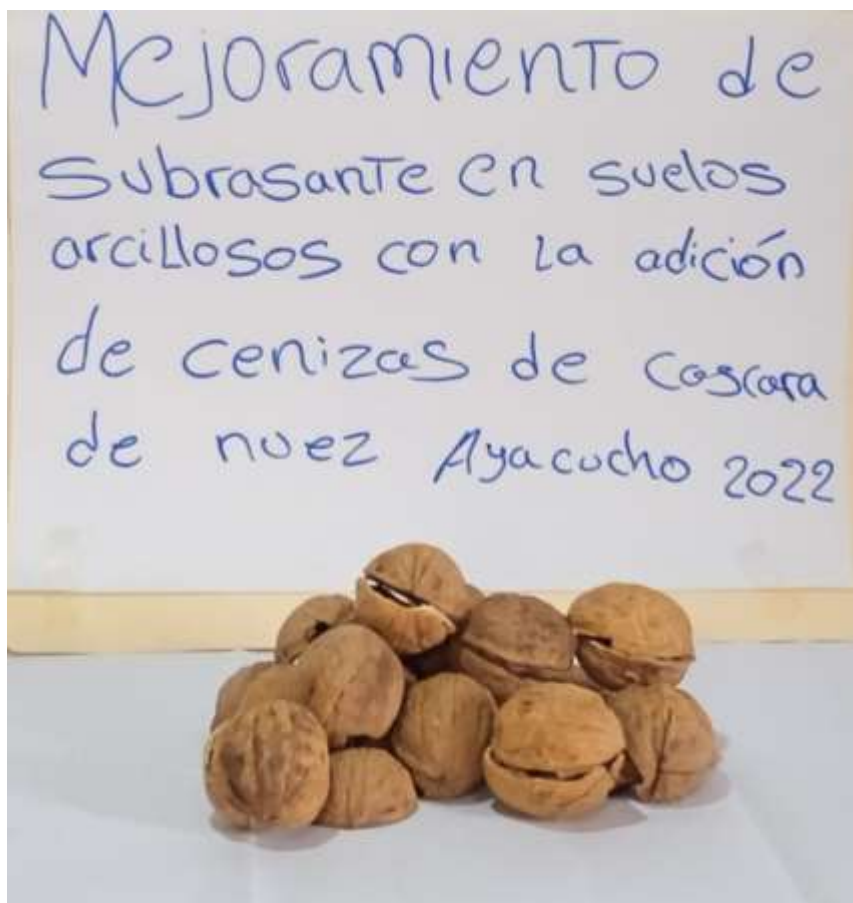 Mejoramiento de
subrasante en suelos
arcillosos con la adición
de cenizas de cascara
de nuez Ayacucho 2022